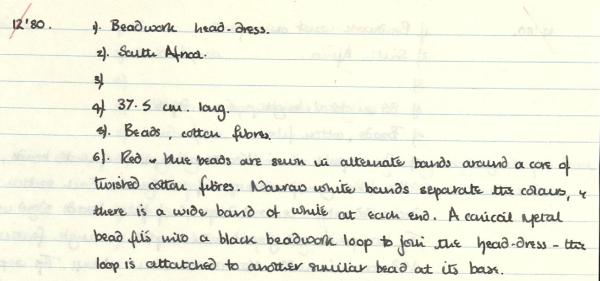 12'80. 1). Beadwork head-dress.
2). South Africa.
3)
4) 37.5 cm. long.
5). Beads, cotton fibres.
6). Red & blue beads are sewn in alternate bands around a core of
twisted cotton fibres. Narrow white bands separate the colours, &
there is a wide band of white at each end. A conical metal
bead fits into a black beadwork loop to join the head-dress - the
loop is attatched to another similar bead at its base.